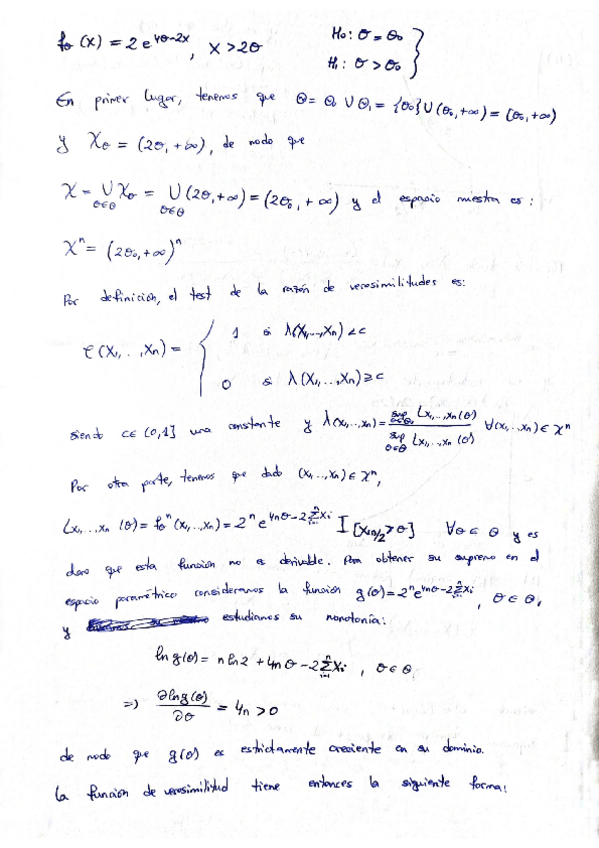 f_θ(x) = 2 e^{4θ-2x}, x > 2θ   H₀: θ = θ₀ }
H₁: θ > θ₀ }
En primer lugar, tenemos que Θ = Θ₀ ∪ Θ₁ = {θ₀} ∪ (θ₀, +∞) = [θ₀, +∞)
y X_θ = (2θ, +∞), de modo que
X = ∪_{θ∈Θ} X_θ = ∪_{θ∈Θ} (2θ, +∞) = (2θ₀, +∞) y el espacio muestra es:
Xⁿ = (2θ₀, +∞)ⁿ
Por definición, el test de la razón de verosimilitudes es:
τ(X₁, .., Xₙ) = { 1 si λ(X₁,..,Xₙ) < c
0 si λ(X₁,..,Xₙ) ≥ c
siendo c ∈ (0,1] una constante y λ(x₁,..,xₙ) = sup_{θ∈Θ₀} L_{x₁,..,xₙ}(θ) / sup_{θ∈Θ} L_{x₁,..,xₙ}(θ) ∀(x₁,..,xₙ) ∈ Xⁿ
Por otra parte, tenemos que dado (x₁,..,xₙ) ∈ Xⁿ,
L_{x₁,..,xₙ}(θ) = f_θⁿ(x₁,..,xₙ) = 2ⁿ e^{4nθ-2∑_{i=1}^n xᵢ} I_{[x₍₁₎/2 > θ]} ∀θ ∈ Θ y es
claro que esta función no es derivable. Para obtener su supremo en el
espacio paramétrico consideramos la función g(θ) = 2ⁿ e^{4nθ-2∑_{i=1}^n xᵢ}, θ ∈ Θ,
y estudiamos su monotonía:
ln g(θ) = n ln 2 + 4nθ - 2∑_{i=1}^n xᵢ, θ ∈ Θ
⇒ ∂ln g(θ)/∂θ = 4n > 0
de modo que g(θ) es estrictamente creciente en su dominio.
La función de verosimilitud tiene entonces la siguiente forma: